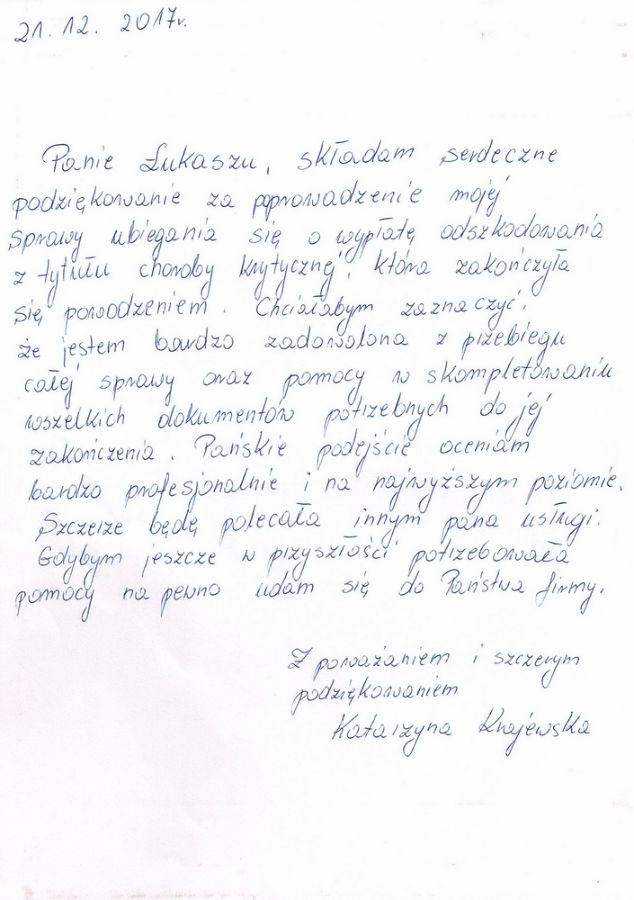 21. 12. 2017r.
Panie Łukaszu, składam serdeczne
podziękowanie za poprowadzenie mojej
sprawy ubiegania się o wypłatę odszkodowania
z tytułu choroby krytycznej, która zakończyła
się powodzeniem. Chciałabym zaznaczyć,
że jestem bardzo zadowolona z przebiegu
całej sprawy oraz pomocy w skompletowaniu
wszelkich dokumentów potrzebnych do jej
zakończenia. Pańskie podejście oceniam
bardzo profesjonalnie i na najwyższym poziomie.
Szczerze będę polecała innym pana usługi.
Gdybym jeszcze w przyszłości potrzebowała
pomocy na pewno udam się do Państwa firmy.
Z poważaniem i szczerym
podziękowaniem
Katarzyna Krajewska